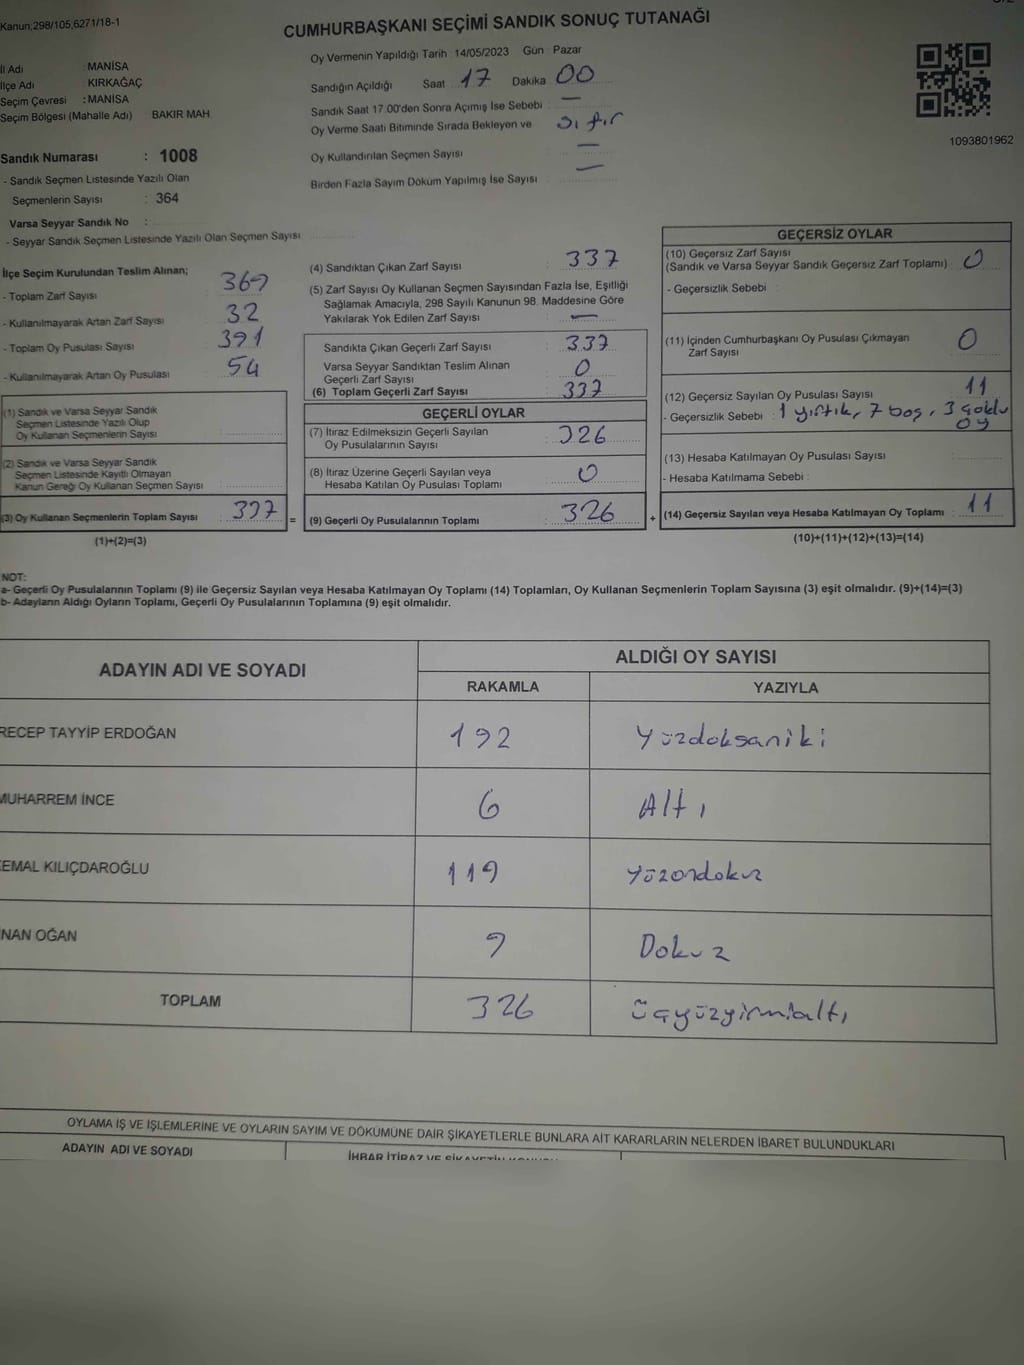 Kanun;298/105,6271/18-1
CUMHURBAŞKANI SEÇİMİ SANDIK SONUÇ TUTANAĞI
İl Adı : MANİSA
İlçe Adı : KIRKAĞAÇ
Seçim Çevresi : MANİSA
Seçim Bölgesi (Mahalle Adı) BAKIR MAH
Sandık Numarası : 1008
- Sandık Seçmen Listesinde Yazılı Olan
Seçmenlerin Sayısı : 364
Varsa Seyyar Sandık No :
- Seyyar Sandık Seçmen Listesinde Yazılı Olan Seçmen Sayısı
Oy Vermenin Yapıldığı Tarih : 14/05/2023 Gün : Pazar
Sandığın Açıldığı Saat 17 Dakika 00
Sandık Saat 17.00'den Sonra Açımış İse Sebebi : —
Oy Verme Saati Bitiminde Sırada Bekleyen ve : sıfır
Oy Kullandırılan Seçmen Sayısı —
Birden Fazla Sayım Döküm Yapılmış İse Sayısı : —
1093801962
İlçe Seçim Kurulundan Teslim Alınan;
- Toplam Zarf Sayısı 369
- Kullanılmayarak Artan Zarf Sayısı 32
- Toplam Oy Pusulası Sayısı 391
- Kullanılmayarak Artan Oy Pusulası 54
(1) Sandık ve Varsa Seyyar Sandık
Seçmen Listesinde Yazılı Olup
Oy Kullanan Seçmenlerin Sayısı :
(2) Sandık ve Varsa Seyyar Sandık
Seçmen Listesinde Kayıtlı Olmayan
Kanun Gereği Oy Kullanan Seçmen Sayısı :
(3) Oy Kullanan Seçmenlerin Toplam Sayısı : 337 =
(1)+(2)=(3)
(4) Sandıktan Çıkan Zarf Sayısı : 337
(5) Zarf Sayısı Oy Kullanan Seçmen Sayısından Fazla İse, Eşitliği
Sağlamak Amacıyla, 298 Sayılı Kanunun 98. Maddesine Göre
Yakılarak Yok Edilen Zarf Sayısı : —
Sandıkta Çıkan Geçerli Zarf Sayısı : 337
Varsa Seyyar Sandıktan Teslim Alınan
Geçerli Zarf Sayısı : 0
(6) Toplam Geçerli Zarf Sayısı : 337
GEÇERLİ OYLAR
(7) İtiraz Edilmeksizin Geçerli Sayılan
Oy Pusulalarının Sayısı : 326
(8) İtiraz Üzerine Geçerli Sayılan veya
Hesaba Katılan Oy Pusulası Toplamı : 0
(9) Geçerli Oy Pusulalarının Toplamı : 326 +
GEÇERSİZ OYLAR
(10) Geçersiz Zarf Sayısı
(Sandık ve Varsa Seyyar Sandık Geçersiz Zarf Toplamı) : 0
- Geçersizlik Sebebi :
(11) İçinden Cumhurbaşkanı Oy Pusulası Çıkmayan
Zarf Sayısı : 0
(12) Geçersiz Sayılan Oy Pusulası Sayısı : 11
- Geçersizlik Sebebi : 1 yırtık, 7 boş, 3 çoklu
oy
(13) Hesaba Katılmayan Oy Pusulası Sayısı :
- Hesaba Katılmama Sebebi :
(14) Geçersiz Sayılan veya Hesaba Katılmayan Oy Toplamı : 11
(10)+(11)+(12)+(13)=(14)
NOT:
a- Geçerli Oy Pusulalarının Toplamı (9) ile Geçersiz Sayılan veya Hesaba Katılmayan Oy Toplamı (14) Toplamları, Oy Kullanan Seçmenlerin Toplam Sayısına (3) eşit olmalıdır. (9)+(14)=(3)
b- Adayların Aldığı Oyların Toplamı, Geçerli Oy Pusulalarının Toplamına (9) eşit olmalıdır.
ADAYIN ADI VE SOYADI ALDIĞI OY SAYISI
RAKAMLA YAZIYLA
RECEP TAYYİP ERDOĞAN 192 Yüzdoksaniki
MUHARREM İNCE 6 Altı
KEMAL KILIÇDAROĞLU 119 Yüzondokuz
NAN OĞAN 9 Dokuz
TOPLAM 326 üçyüzyirmialtı
OYLAMA İŞ VE İŞLEMLERİNE VE OYLARIN SAYIM VE DÖKÜMÜNE DAİR ŞİKAYETLERLE BUNLARA AİT KARARLARIN NELERDEN İBARET BULUNDUKLARI
ADAYIN ADI VE SOYADI İHBAR İTİRAZ VE ŞİKAYETİN KONUSU